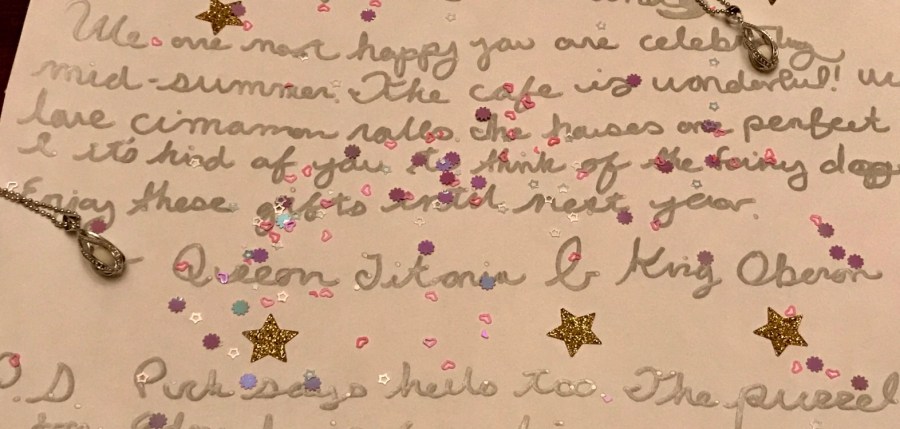 We are most happy you are celebrating
mid-summer. The cafe is wonderful! We
love cinnamon rolls. The houses are perfect
& it's kind of you to think of the fairy doggs
Enjoy these gifts until next year.
- Queen Titania & King Oberon
P.S Puck says hello too. The puzzel